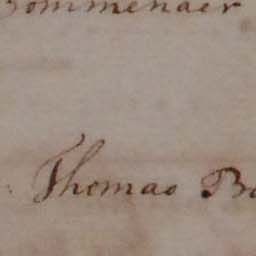 Bommenaer
Thomas Ba